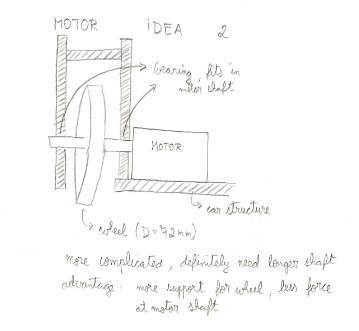 MOTOR IDEA 2
bearing, fits in
motor shaft
MOTOR
car structure
wheel (D=72mm)
more complicated, definitely need longer shaft
advantage: more support for wheel, less force
at motor shaft